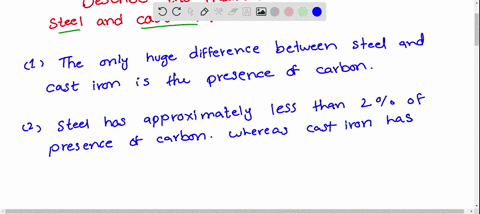 Describe
Steel and cast
(1) The only huge difference between steel and
cast iron is the presence of carbon.
(2) Steel has approximately less than 2% of
presence of carbon. whereas cast iron has